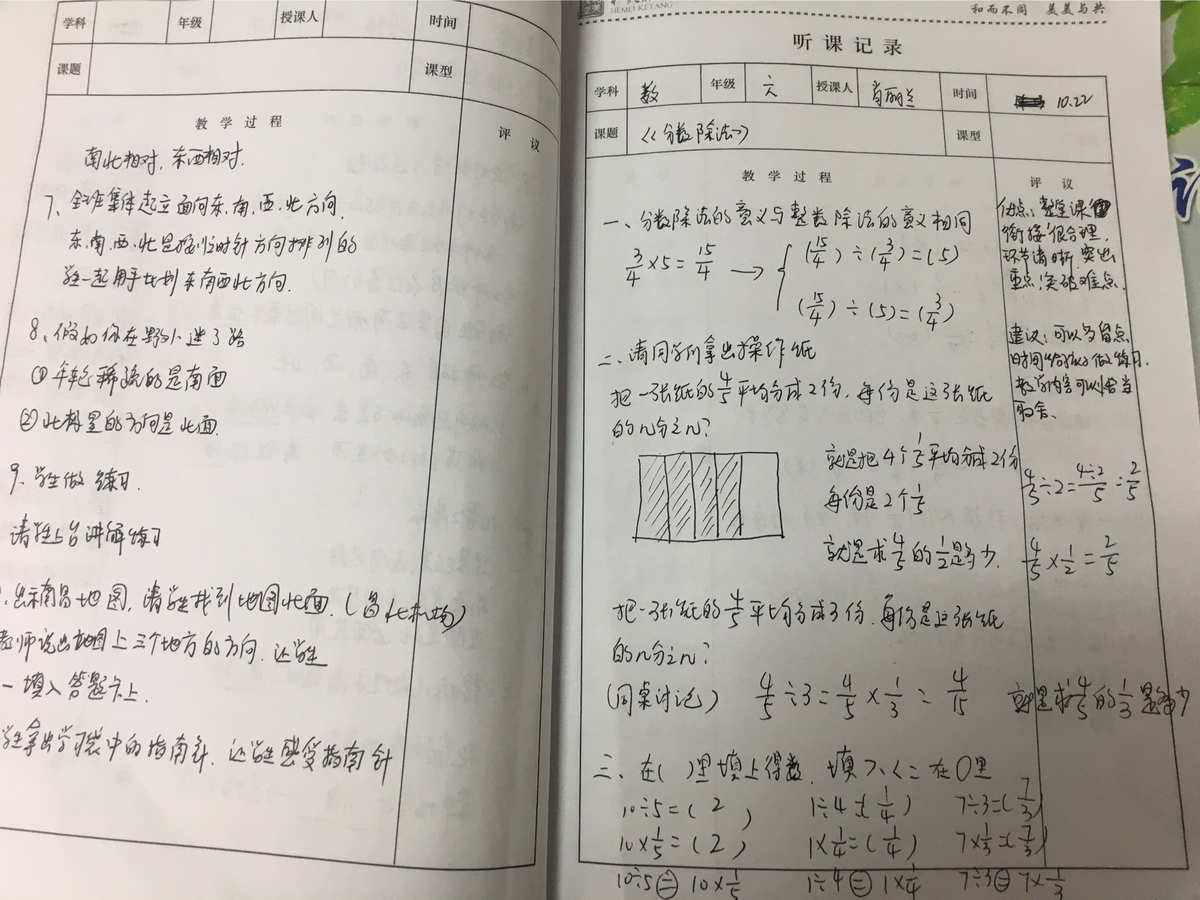 学科 年级 授课人 时间
课题 课型
教学过程 评议
南北相对，东西相对.
7、全班集体起立面向东、南、西、北方向.
东、南、西、北是按顺时针方向排列的
学生一起用手比划东南西北方向.
8、假如你在野外迷了路
① 年轮稀疏的是南面
②北极星的方向是北面.
9、学生做练习.
请学生上台讲解练习
出示南昌地图，请学生找到地图北面.(昌北机场)
老师说出地图上三个地方的方向.让学生
一填入答题卡上.
学生拿出学习袋中的指南针.让学生感受指南针
HEMEI KETANG
和而不同 美美与共
听课记录
学科 数 年级 六 授课人 肖丽兰 时间 10.22
课题 《分数除法》 课型
教学过程 评议
一、分数除法的意义与整数除法的意义相同
3/4×5=15/4 → { (15/4)÷(3/4)=(5)
(15/4)÷(5)=(3/4)
二、请同学们拿出操作纸
把一张纸的4/5平均分成2份，每份是这张纸
的几分之几?
就是把4个1/5平均分成2份
每份是2个1/5
就是求4/5的1/2是多少.
把一张纸的4/5平均分成3份，每份是这张纸
的几分之几?
(同桌讨论) 4/5÷3=4/5×1/3=4/15 就是求4/5的1/3是多少
三、在( )里填上得数，填>、<、=在○里
10÷5=(2) 1÷4=(1/4) 7÷3=(7/3)
10×1/5=(2) 1×1/4=(1/4) 7×1/3=(7/3)
10÷5㊀10×1/5 1÷4㊀1×1/4 7÷3㊀7×1/3
优点：整堂课
衔接很合理，
环节清晰，突出
重点，突破难点.
建议：可以多留点
时间给孩子做练习.
教学内容可以恰当
取舍.
4/5÷2=4÷2/5=2/5
4/5×1/2=2/5